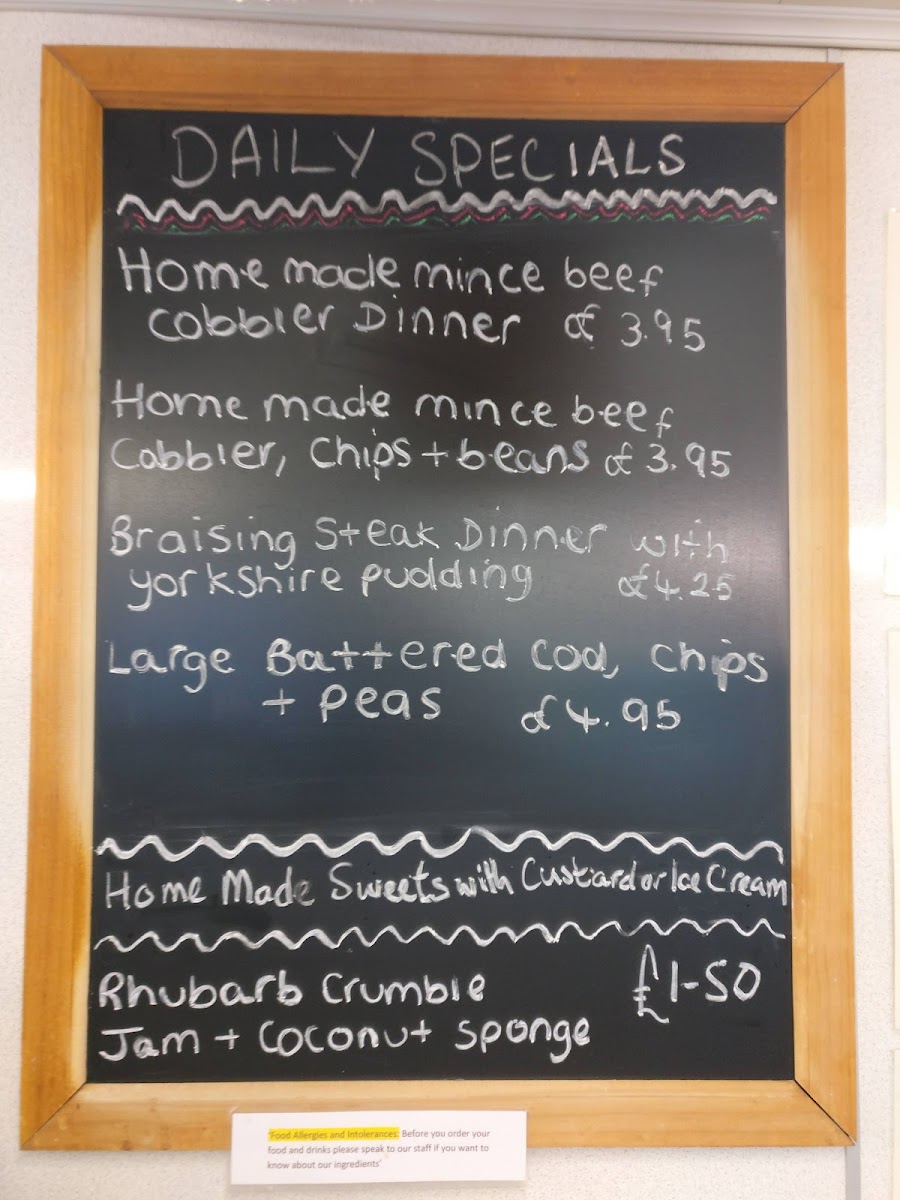 DAILY SPECIALS
Home made mince beef
cobbler Dinner £3.95
Home made mince beef
Cobbler, Chips + beans £3.95
Braising Steak Dinner with
yorkshire pudding £4.25
Large Battered Cod, Chips
+ peas £4.95
Home Made Sweets with Custard or Ice Cream
Rhubarb Crumble £1-50
Jam + Coconut sponge
'Food Allergies and Intolerances. Before you order your
food and drinks please speak to our staff if you want to
know about our ingredients'